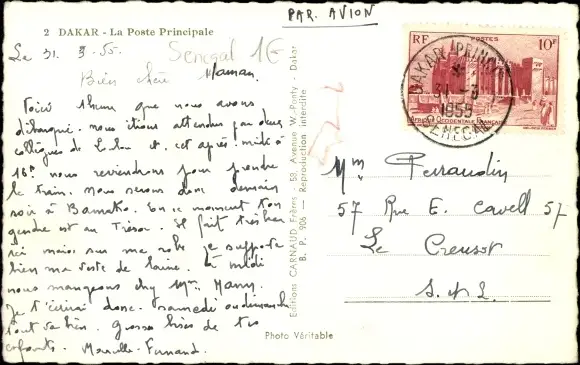 PAR AVION
2 DAKAR - La Poste Principale
Le 31. 3. 55.
Senegal 1€
Bien chère Maman.
Voici 1 heure que nous avons
débarqué. nous étions attendus par deux
collègues de et, cet après-midi à
16h nous reviendrons pour prendre
le train. nous serons donc demain
soir à Bamako. En ce moment ton
gendre est au Trésor. Il fait très bon
ici mais sur ma robe je supporte
bien ma veste de laine. à midi
nous mangeons chez Mme
Je t'écrirai donc samedi ou dimanche
tout va bien. Grosses bises de tes
enfants. Marcelle-Fernand.
Editions CARNAUD Frères - 53, Avenue W. Ponty - Dakar
B. P. 906 — Reproduction interdite
Photo Véritable
RF POSTES 10F
AFRIQUE OCCIDENTALE FRANÇAISE
DAKAR PRINCIPAL
31 -3
1955
SENEGAL
Mme Perraudin
57 Rue E. Cavell 57
Le Creusot
S. et L.